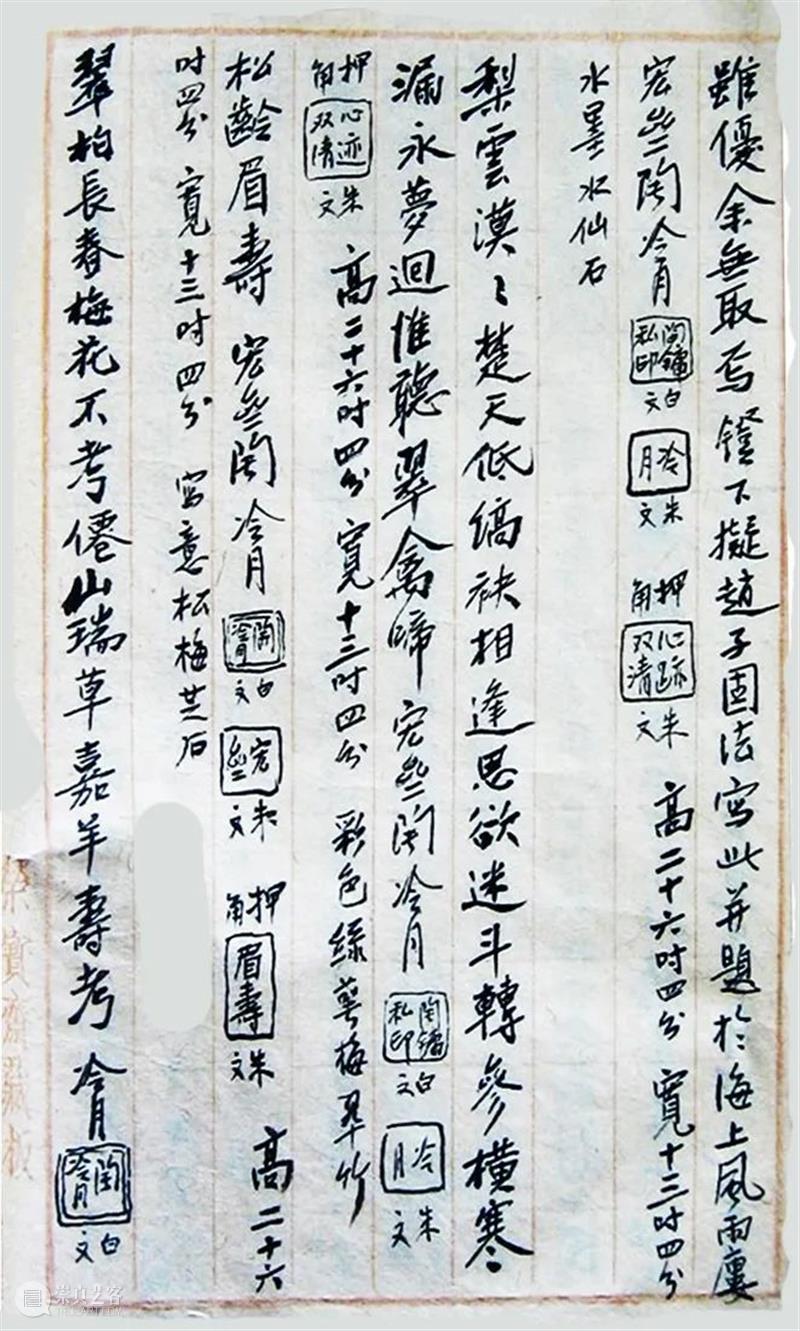 雖優余無取焉鐙下擬趙子固法寫此并題於海上風雨廔
宏斋陶冷月 陶鏞私印 白文 冷月 朱文 押角 心跡双清 朱文 高二十六吋四分 寬十三吋四分
水墨水仙石
梨雲漠〻楚天低縞袂相逢思欲迷斗轉參橫寒
漏永夢迴惟聽翠禽啼 陶冷月 陶鏞私印 白文 冷月 朱文
押角 心迹双清 朱文 高二十六吋四分 寬十三吋四分 彩色綠萼梅翠竹
松齡眉壽 陶冷月 陶冷月 白文 朱文 押角 眉壽 朱文 高二十六
吋四分 寬十三吋四分 寫意松梅芝石
翠柏長春梅花不考僊山瑞草嘉羊壽考 冷月 陶冷月 白文
榮寶齋
崇真艺客